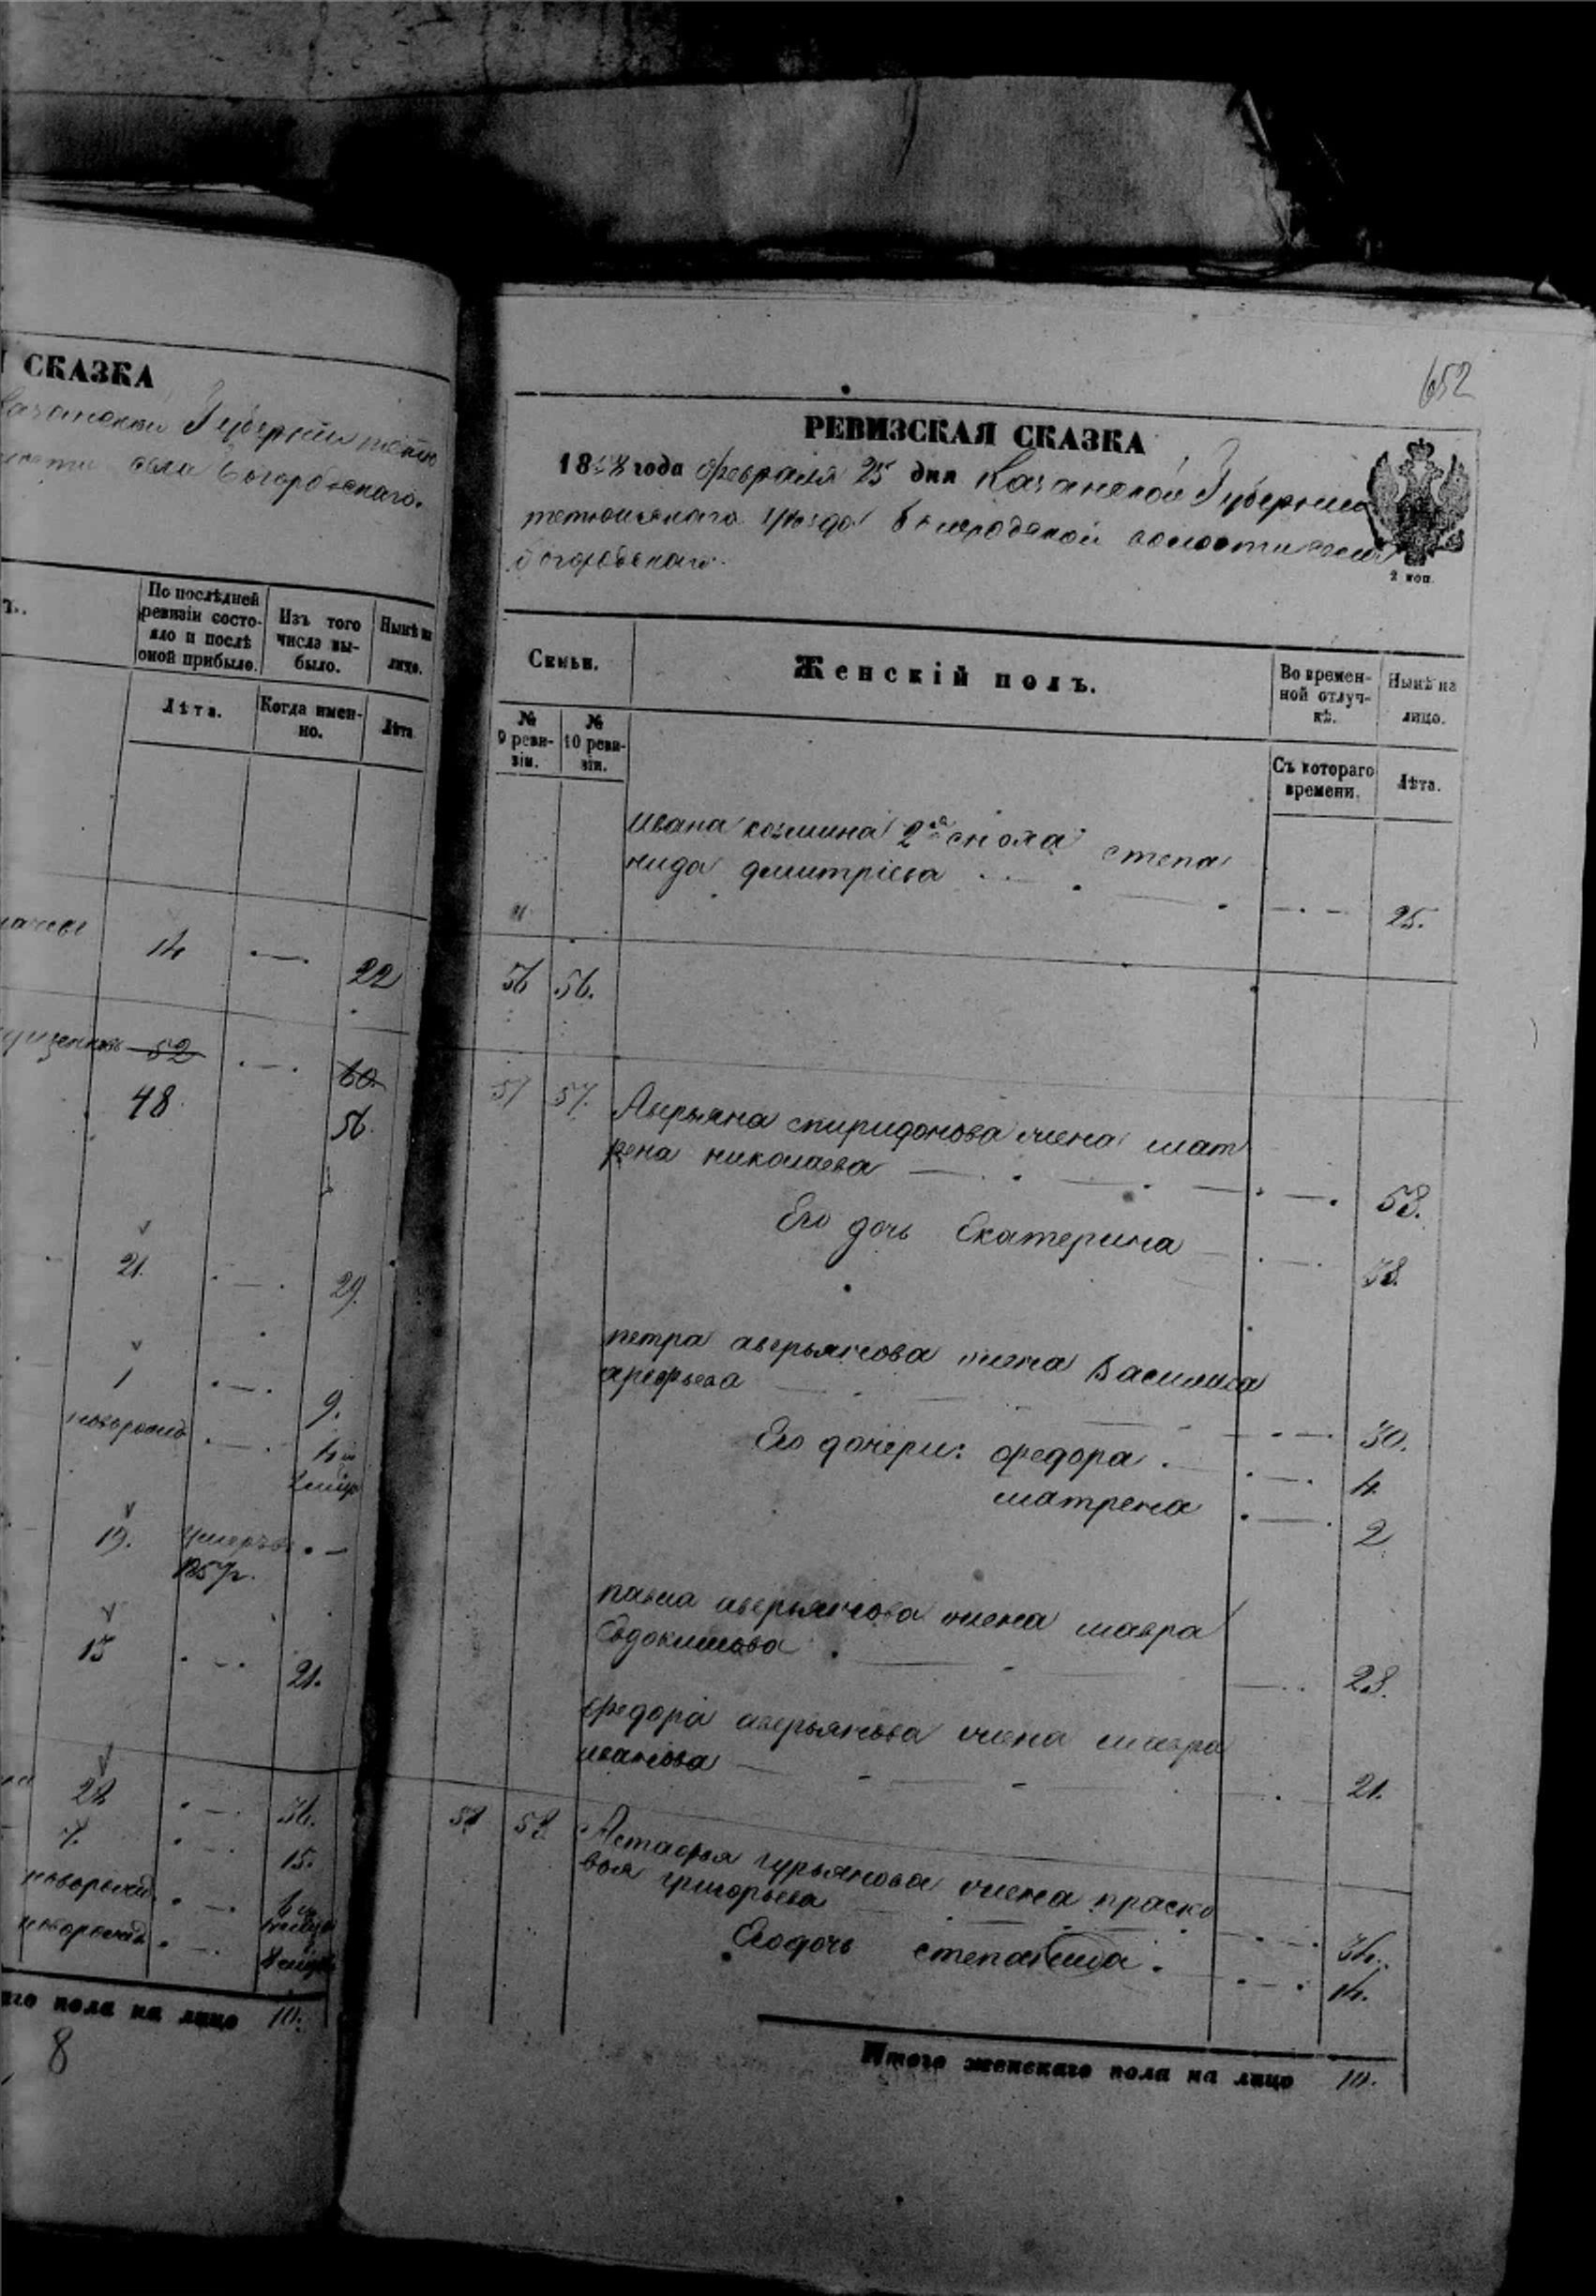 СКАЗКА
Губернии
села Богородскаго.
ъ.
По послѣдней
ревизіи состо-
яло и послѣ
оной прибыло.
Изъ того
числа вы-
было.
Нынѣ на
лицо.
Лѣта.
Когда имен-
но.
Лѣта
14 22
52 60.
48 56.
21. 29.
1 9.
новорожд
19. умеръ въ
1857г.
13 21.
28 36.
7. 15.
новорожд
новорожд
пола на лицо 10.
8
652
РЕВИЗСКАЯ СКАЗКА
1858 года февраля 25 дня Казанской Губернии
тетюшскаго уѣзда Богородской волости села
богородскаго.
2 коп.
Семьи.
Женскій полъ.
Во времен-
ной отлуч-
кѣ.
Нынѣ на
лицо.
№
9 реви-
зіи.
№
10 реви-
зіи.
Съ котораго
времени.
Лѣта.
ивана козмина 2я сноха степа
нида дмитріева 25.
56 56.
57 57. Аверьяна спиридонова жена мат
рена николаева 58.
Его дочь Екатерина 38.
петра аверьянова жена Василиса
арефьева 30.
Его дочери: федора 4
матрена 2
павла аверьянова жена мавра
Евдокимова 28.
федора аверьянова жена мавра
иванова 21.
58 58. Астафья гурьянова жена праско
вья григорьева 34.
Его дочь степанида 14.
Итого женскаго пола на лицо 10.